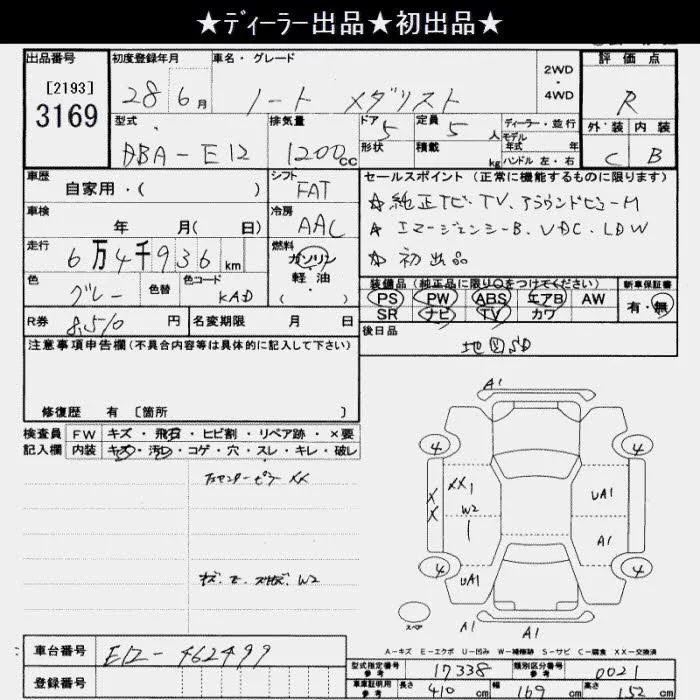 ★ディーラー出品★初出品★
出品番号 初度登録年月 車名・グレード 2WD ・ 4WD 評価点
[2193]
3169
28年 6月 ノート メダリスト R
型式 排気量 ドア 定員 ディーラー・並行
DBA-E12 1200cc 5 5人 モデル年式 年
形状 積載 kg ハンドル 左・右
外装 内装
C B
車歴 自家用・( )
シフト FAT
セールスポイント (正常に機能するものに限ります)
☆純正ナビ・TV、アラウンドビューM
車検 年 月( 日)
冷房 AAC
☆エマージェンシーB、VDC、LDW
走行 6万4千936km
燃料 ガソリン 軽油 ・( )
☆初出品
色 グレー 色替 色コード KAD
装備品 (純正品に限り○をつけてください) 新車保証書
PS PW ABS エアB AW 有・無
SR ナビ TV カワ
R券 8,510円 名変期限 月 日
後日品
地図SD
注意事項申告欄 (不具合内容等は具体的に記入して下さい)
修復歴 有 [箇所 ]
検査員 FW キズ・飛石・ヒビ割・リペア跡・×要
記入欄 内装 キズ・汚レ・コゲ・穴・スレ・キレ・破レ
A1
4 4
XX1 UA1
X
X
W2
A1
4 4
UA1
スペア
A1 A1
A-キズ E-エクボ U-凹み W-補修跡 S-サビ C-腐食 XX-交換済
車台番号 E12-462499
登録番号
型式指定番号 参考 17338 類別区分番号 参考 0021
車車証明用 参考 長さ 410cm 幅 169cm 高さ 152cm